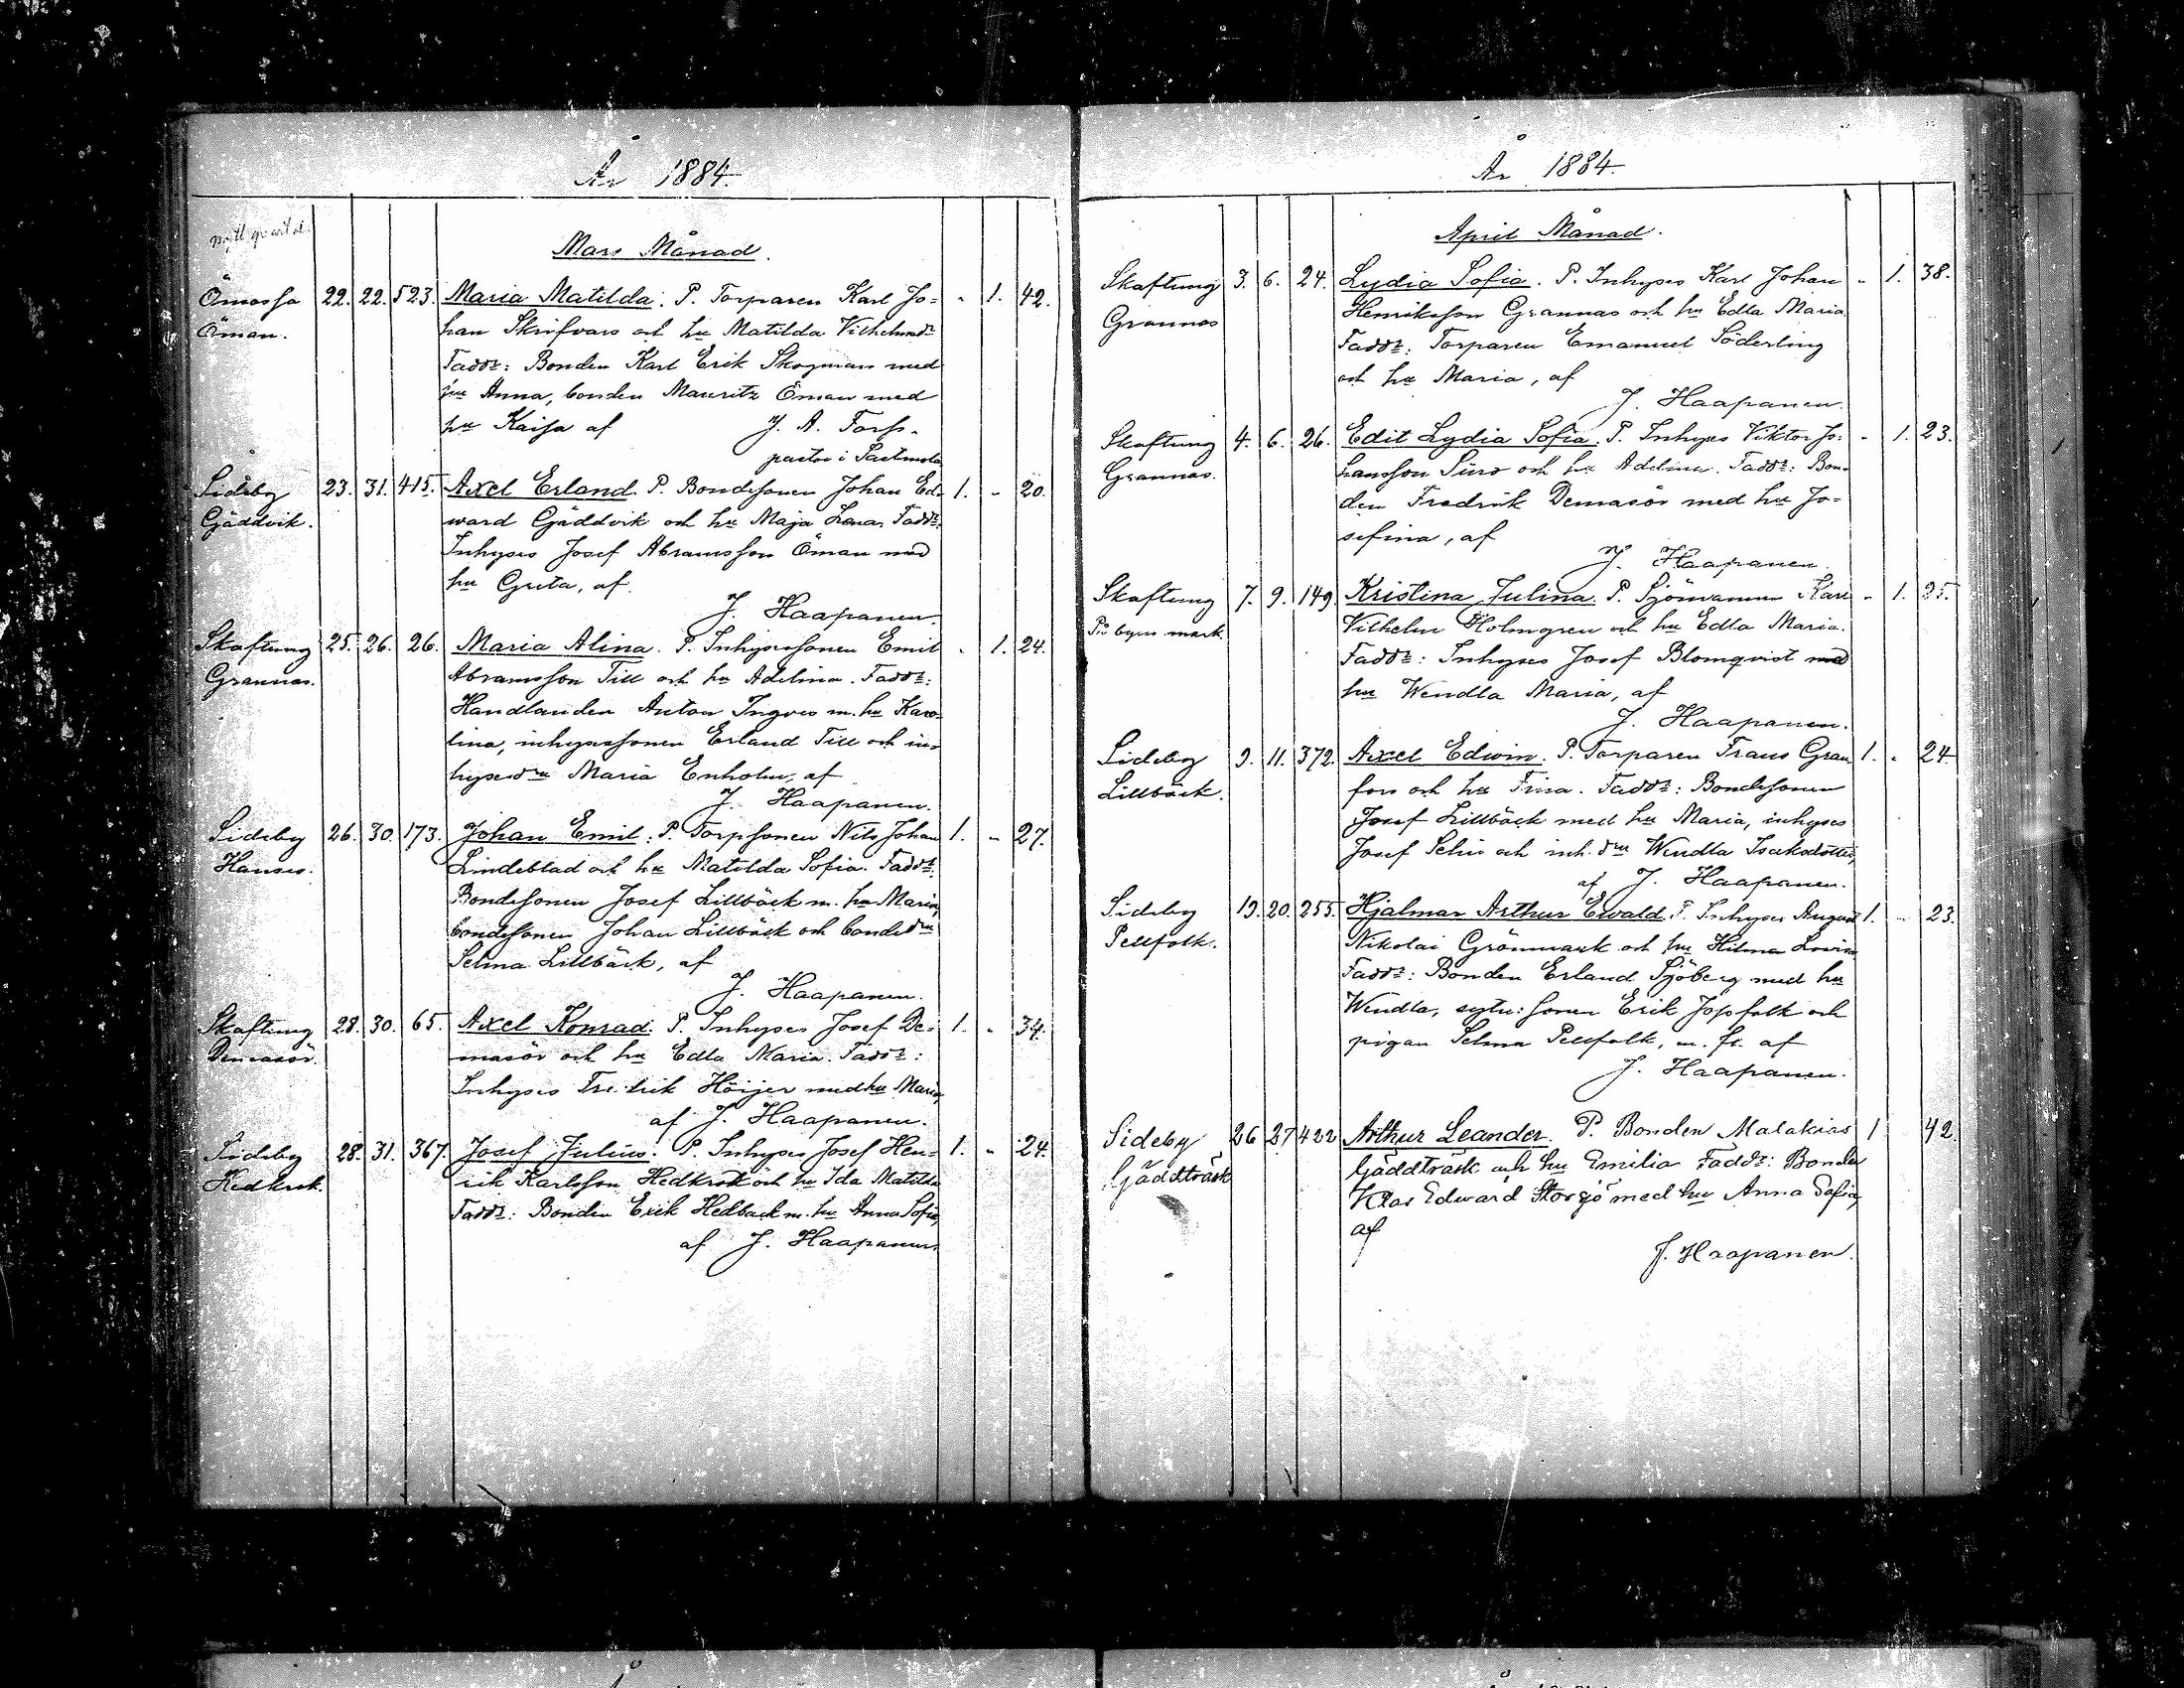 År 1884.
Mars Månad.
Ömossa 22. 22. 523. Maria Matilda. P. Torparen Karl Jo= - 1. 42.
Öman. han Skrifvars och hu Matilda Vilhelmsdr
Faddr: Bonden Karl Erik Skogman med
hu Anna, bonden Mauritz Öman med
hu Kaisa af J. A. Forss.
pastor i Sastmola
Sideby 23. 31. 415. Axel Erland. P. Bondesonen Johan Ed= 1. - 20.
Gäddvik. ward Gäddvik och hu Maja Lena. Faddr:
Inhyses Josef Abramsson Öman med
hu Greta, af
J. Haapanen.
Skaftung 25. 26. 26. Maria Alina. P. Inhysessonen Emil - 1. 24.
Grannas. Abramsson Till och hu Adelina. Faddr:
Handlanden Anton Ingves m. hu Karo=
lina, inhysessonen Erland Till och in=
hysesdrn Maria Enholm, af
J. Haapanen.
Sideby 26. 30. 173. Johan Emil. P. Torpsonen Nils Johan 1. - 27.
Hanses. Lindeblad och hu Matilda Sofia. Faddr:
Bondesonen Josef Lillbäck m. hu Maria,
bondesonen Johan Lillbäck och bondedrn
Selma Lillbäck, af
J. Haapanen.
Skaftung 28. 30. 65. Axel Konrad. P. Inhyses Josef De= 1. - 34.
Demasör. masör och hu Edla Maria. Faddr:
Inhyses Fredrik Höijer med hu Maria,
af J. Haapanen.
Sideby 28. 31. 367. Josef Julius. P. Inhyses Josef Hen= 1. - 24.
Hedkrok. rik Karlsson Hedkrok och hu Ida Matilda
Faddr: Bonden Erik Hedback m. hu Anna Sofia,
af J. Haapanen.
År 1884.
April Månad.
Skaftung 3. 6. 24. Lydia Sofia. P. Inhyses Karl Johan - 1. 38.
Grannas Henriksson Grannas och hu Edla Maria
Faddr: Torparen Emanuel Söderling
och hu Maria, af
J. Haapanen.
Skaftung 4. 6. 26. Edit Lydia Sofia. P. Inhyses Viktor Jo= - 1. 23.
Grannas. hansson Siirs och hu Adelina. Faddr: Bon=
den Fredrik Demasör med hu Jo=
sefina, af
J. Haapanen.
Skaftung 7. 9. 149. Kristina Julina. P. Sjömannen Karl - 1. 25.
På byns mark. Vilhelm Holmgren och hu Edla Maria.
Faddr: Inhyses Josef Blomqvist med
hu Wendla Maria, af
J. Haapanen.
Sideby 9. 11. 372. Axel Edwin. P. Torparen Frans Gran 1. - 24.
Lillbäck. fors och hu Fina. Faddr: Bondesonen
Josef Lillbäck med hu Maria, inhyses
Josef Selin och inh. drn Wendla Isaksdotter,
af J. Haapanen.
Sideby 19. 20. 255. Hjalmar Arthur Ewald. P. Inhyses August 1. - 23.
Pellfolk. Nikolai Grönmark och hu Hilma Lovisa
Faddr: Bonden Erland Sjöberg med hu
Wendla, sytn: sonen Erik Jossfolk och
pigan Selma Pellfolk, m. fl. af
J. Haapanen.
Sideby 26 27 422 Arthur Leander. P. Bonden Malakias 1 42.
Gäddträsk Gäddträsk och hu Emilia Faddr: Bonden
Klas Edward Storsjö med hu Anna Sofia,
af
J. Haapanen.